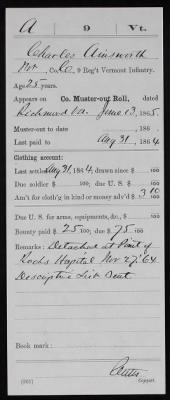 A 9 Vt.
Charles Ainsworth
Pvt, Co. C, 9 Reg't Vermont Infantry.
Age 25 years.
Appears on Co. Muster-out Roll, dated
Richmond Va. June 13, 1865.
Muster-out to date , 186 .
Last paid to Aug 31, 1864
Clothing account:
Last settled Aug 31, 1864; drawn since $ 100
Due soldier $ 100; due U. S. $ 100
Am't for cloth'g in kind or money adv'd $ 3 10/100
Due U. S. for arms, equipments, &c., $ 100
Bounty paid $ 25 100; due $ 75 100
Remarks: Detached at Point of
Rocks Hospital Nov 27, '64
Descriptive List Sent
Book mark:
(361) Copyist.